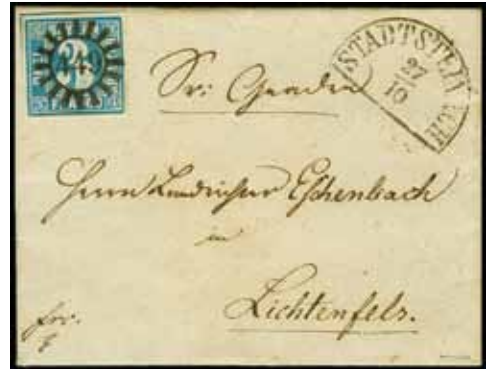 STADTSTEINACH
27
10
Sr: Gnaden
Herrn Landrichter Eschenbach
in
Lichtenfels.
frei.